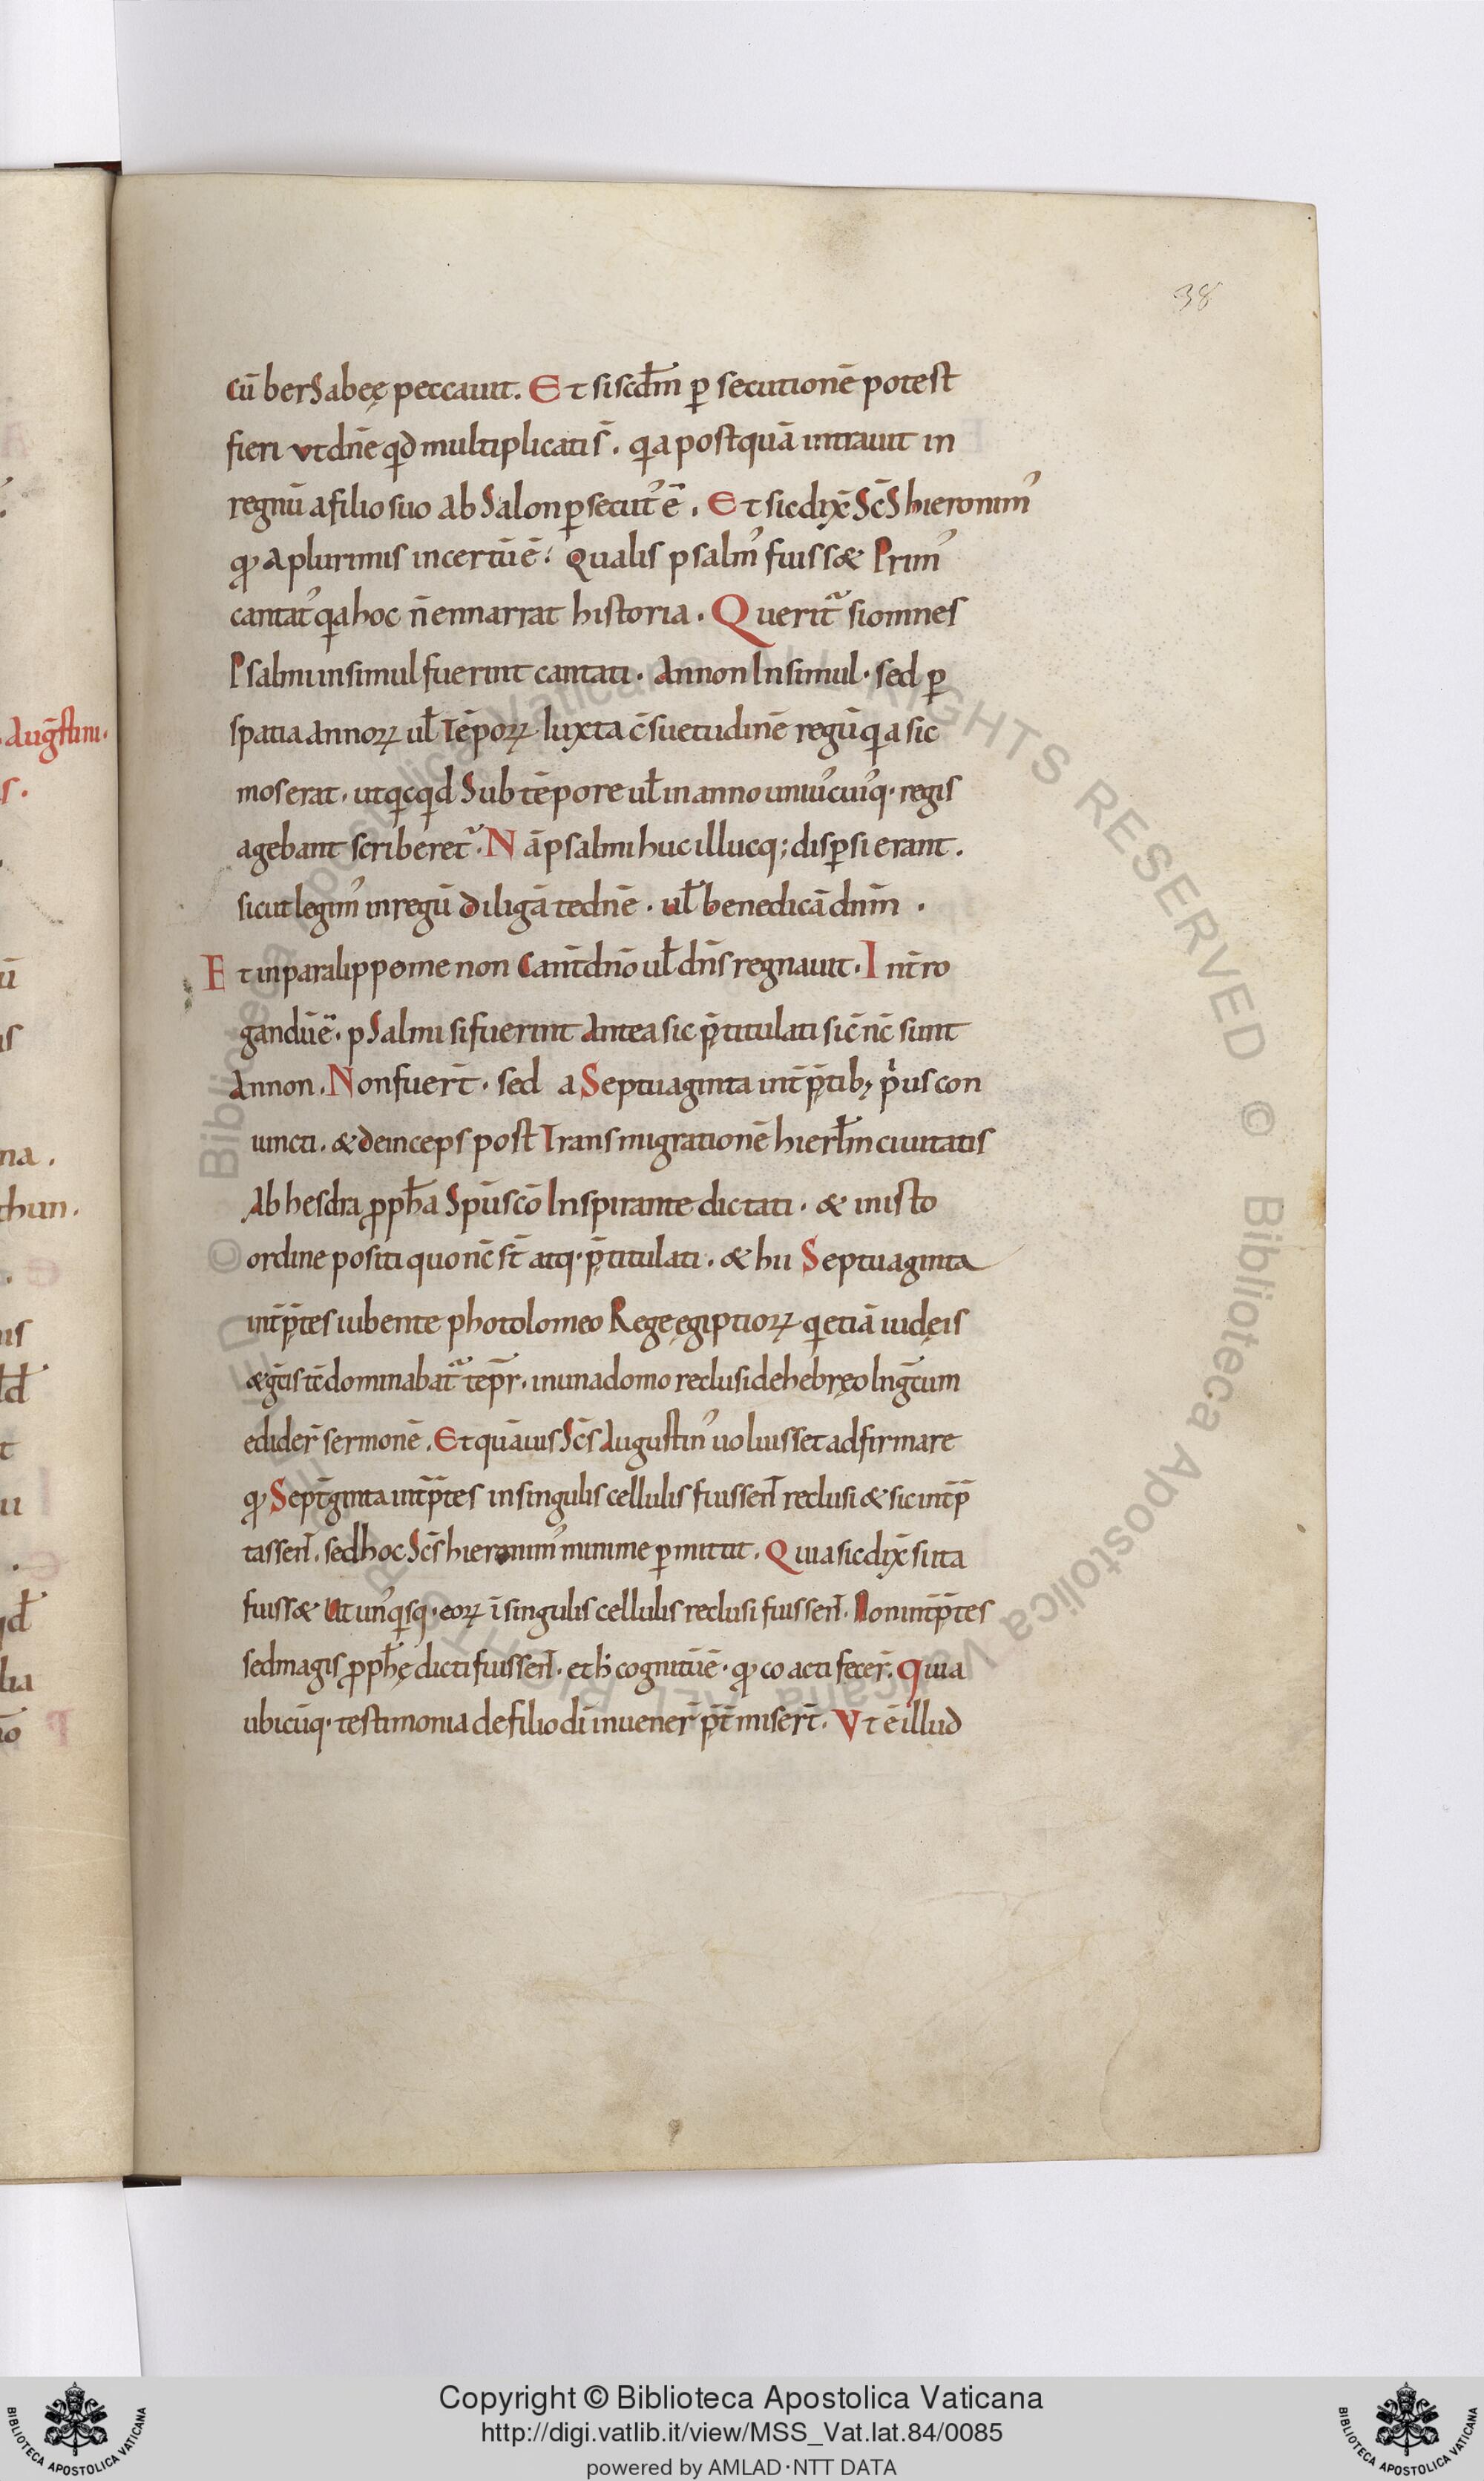 38
cū berSabeę peccauit. Et si scd̄m ꝑ secutionē potest
fieri ut dn̄e qd̄ multiplicati s̄. qa postquā intrauit in
regnū a filio suo AbSalon ꝑsecut᾽ ē. Et sic dix̄ Sc̄S hieronim᾽
qꝫ A plurimis incertū ē. Qualis psalm᾽ fuiss& Prim᾽
cantat᾽ qa hoc n̄ ennarrat historia. Querit᷑ si omnes
Psalmi insimul fuerint cantati. Annon Insimul. sed ꝑ
spatia annoꝝ ul̄ Tēpoꝝ Iuxta c̄suetudinē regū qa sic
mos erat. ut qcqd Sub tēpore ul̄ in anno uniu᾽cui᾽q. regis
agebant scriberet᷑. Nā psalmi huc illucq; disꝑsi erant.
sicut legim᾽ in regū Diligā te dn̄e. ul̄ benedicā dn̄m.
Et in paralippomenon Cant̄ dn̄o ul̄ dn̄s regnauit. Int̄ro
gandū ē. pSalmi si fuerint Antea sic p̄titulati sic̄ nc̄ sunt
Annon. Non fuer̄t. sed a Septuaginta int̄p̄tibꝫ pⁱus con
iuncti. & deinceps post Transmigrationē hierl̄m ciuitatis
Ab hesdra ꝓph̄a Spū sc̄o Inspirante dictati. & in isto
ordine positi quo nc̄ st̄ atq. p̄titulati. & hii Septuaginta
int̄p̄tes iubente photolomeo Rege ęgiptioꝝ q etiā iudęis
& gc̄is tc̄ dominabat᷑ tep̄r. in una domo reclusi de hebręo In gc̄um
edider̄ sermonē. Et quāuis Sc̄s Augustin᾽ uoluisset adfirmare
qꝫ Sept̄ginta int̄p̄tes in singulis cellulis fuissen̄t reclusi & sic int̄p̄
tassen̄t. sed hoc Sc̄s hieronim᾽ minime ꝑmittit. Quia sic dix̄ si ita
fuiss& Ut un᾽qsq. eoꝝ ī singulis cellulis reclusi fuissen̄t. Non int̄p̄tes
sed magis ꝓph̄ę dicti fuissen̄t. et h̄ cognitū ē. qꝫ coacti fecer̄. Quia
ubicūq. testimonia de filio di̅ inuener̄ p̄t̄miser̄t. Vt ē illud
Augs̄tini.
Copyright © Biblioteca Apostolica Vaticana
http://digi.vatlib.it/view/MSS_Vat.lat.84/0085
powered by AMLAD·NTT DATA